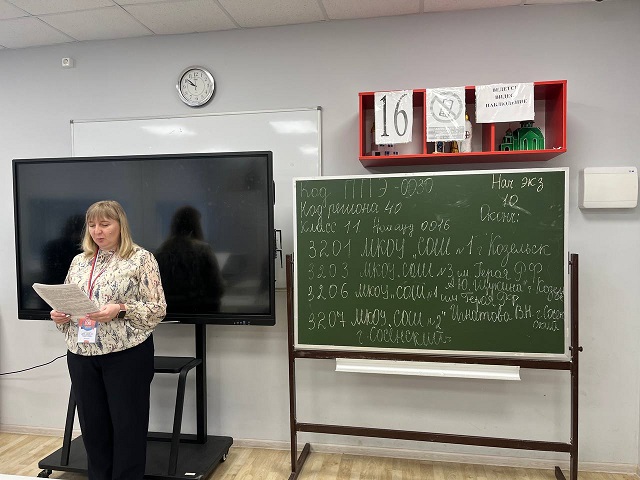 16
ВЕДЕТСЯ
ВИДЕО
НАБЛЮДЕНИЕ
Код ППЭ-0030
Код региона 40
Класс 11 0016
3201 МКОУ „СОШ №1 г Козельск
3203 МКОУ „СОШ №3 им Героя РФ
3206 МКОУ „СОШ №1 им Героя РФ
3207 МКОУ „СОШ №2" Игнатова В.Н. г
г Сосенский
Нач экз
10
Оконч: